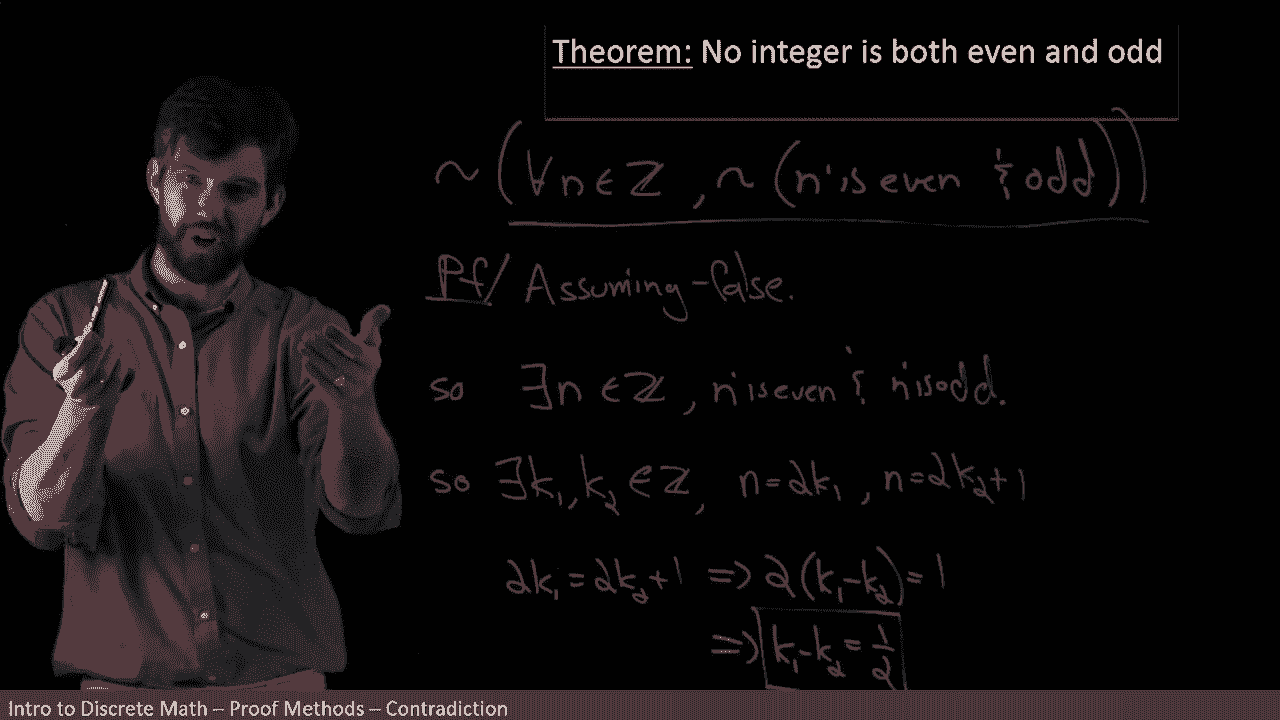 Theorem: No integer is both even and odd
~(∀n∈ℤ, ~(n is even & odd))
Pf/ Assuming-false.
so ∃n∈ℤ, n is even & n is odd.
so ∃k₁,k₂∈ℤ, n=2k₁, n=2k₂+1
2k₁=2k₂+1 ⇒ 2(k₁-k₂)=1
⇒ k₁-k₂=½
Intro to Discrete Math – Proof Methods – Contradiction